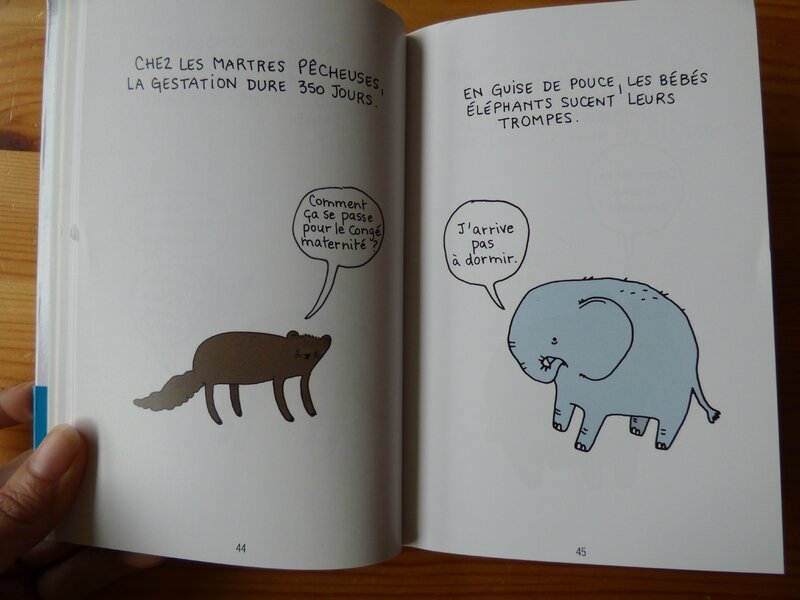 CHEZ LES MARTRES PÊCHEUSES,
LA GESTATION DURE 350 JOURS.
Comment
ça se passe
pour le congé
maternité ?
44
EN GUISE DE POUCE, LES BÉBÉS
ÉLÉPHANTS SUCENT LEURS
TROMPES.
J'arrive
pas
à dormir.
45